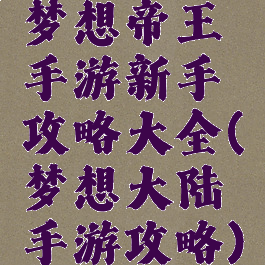 梦想帝王
手游新手
攻略大全(
梦想大陆
手游攻略)